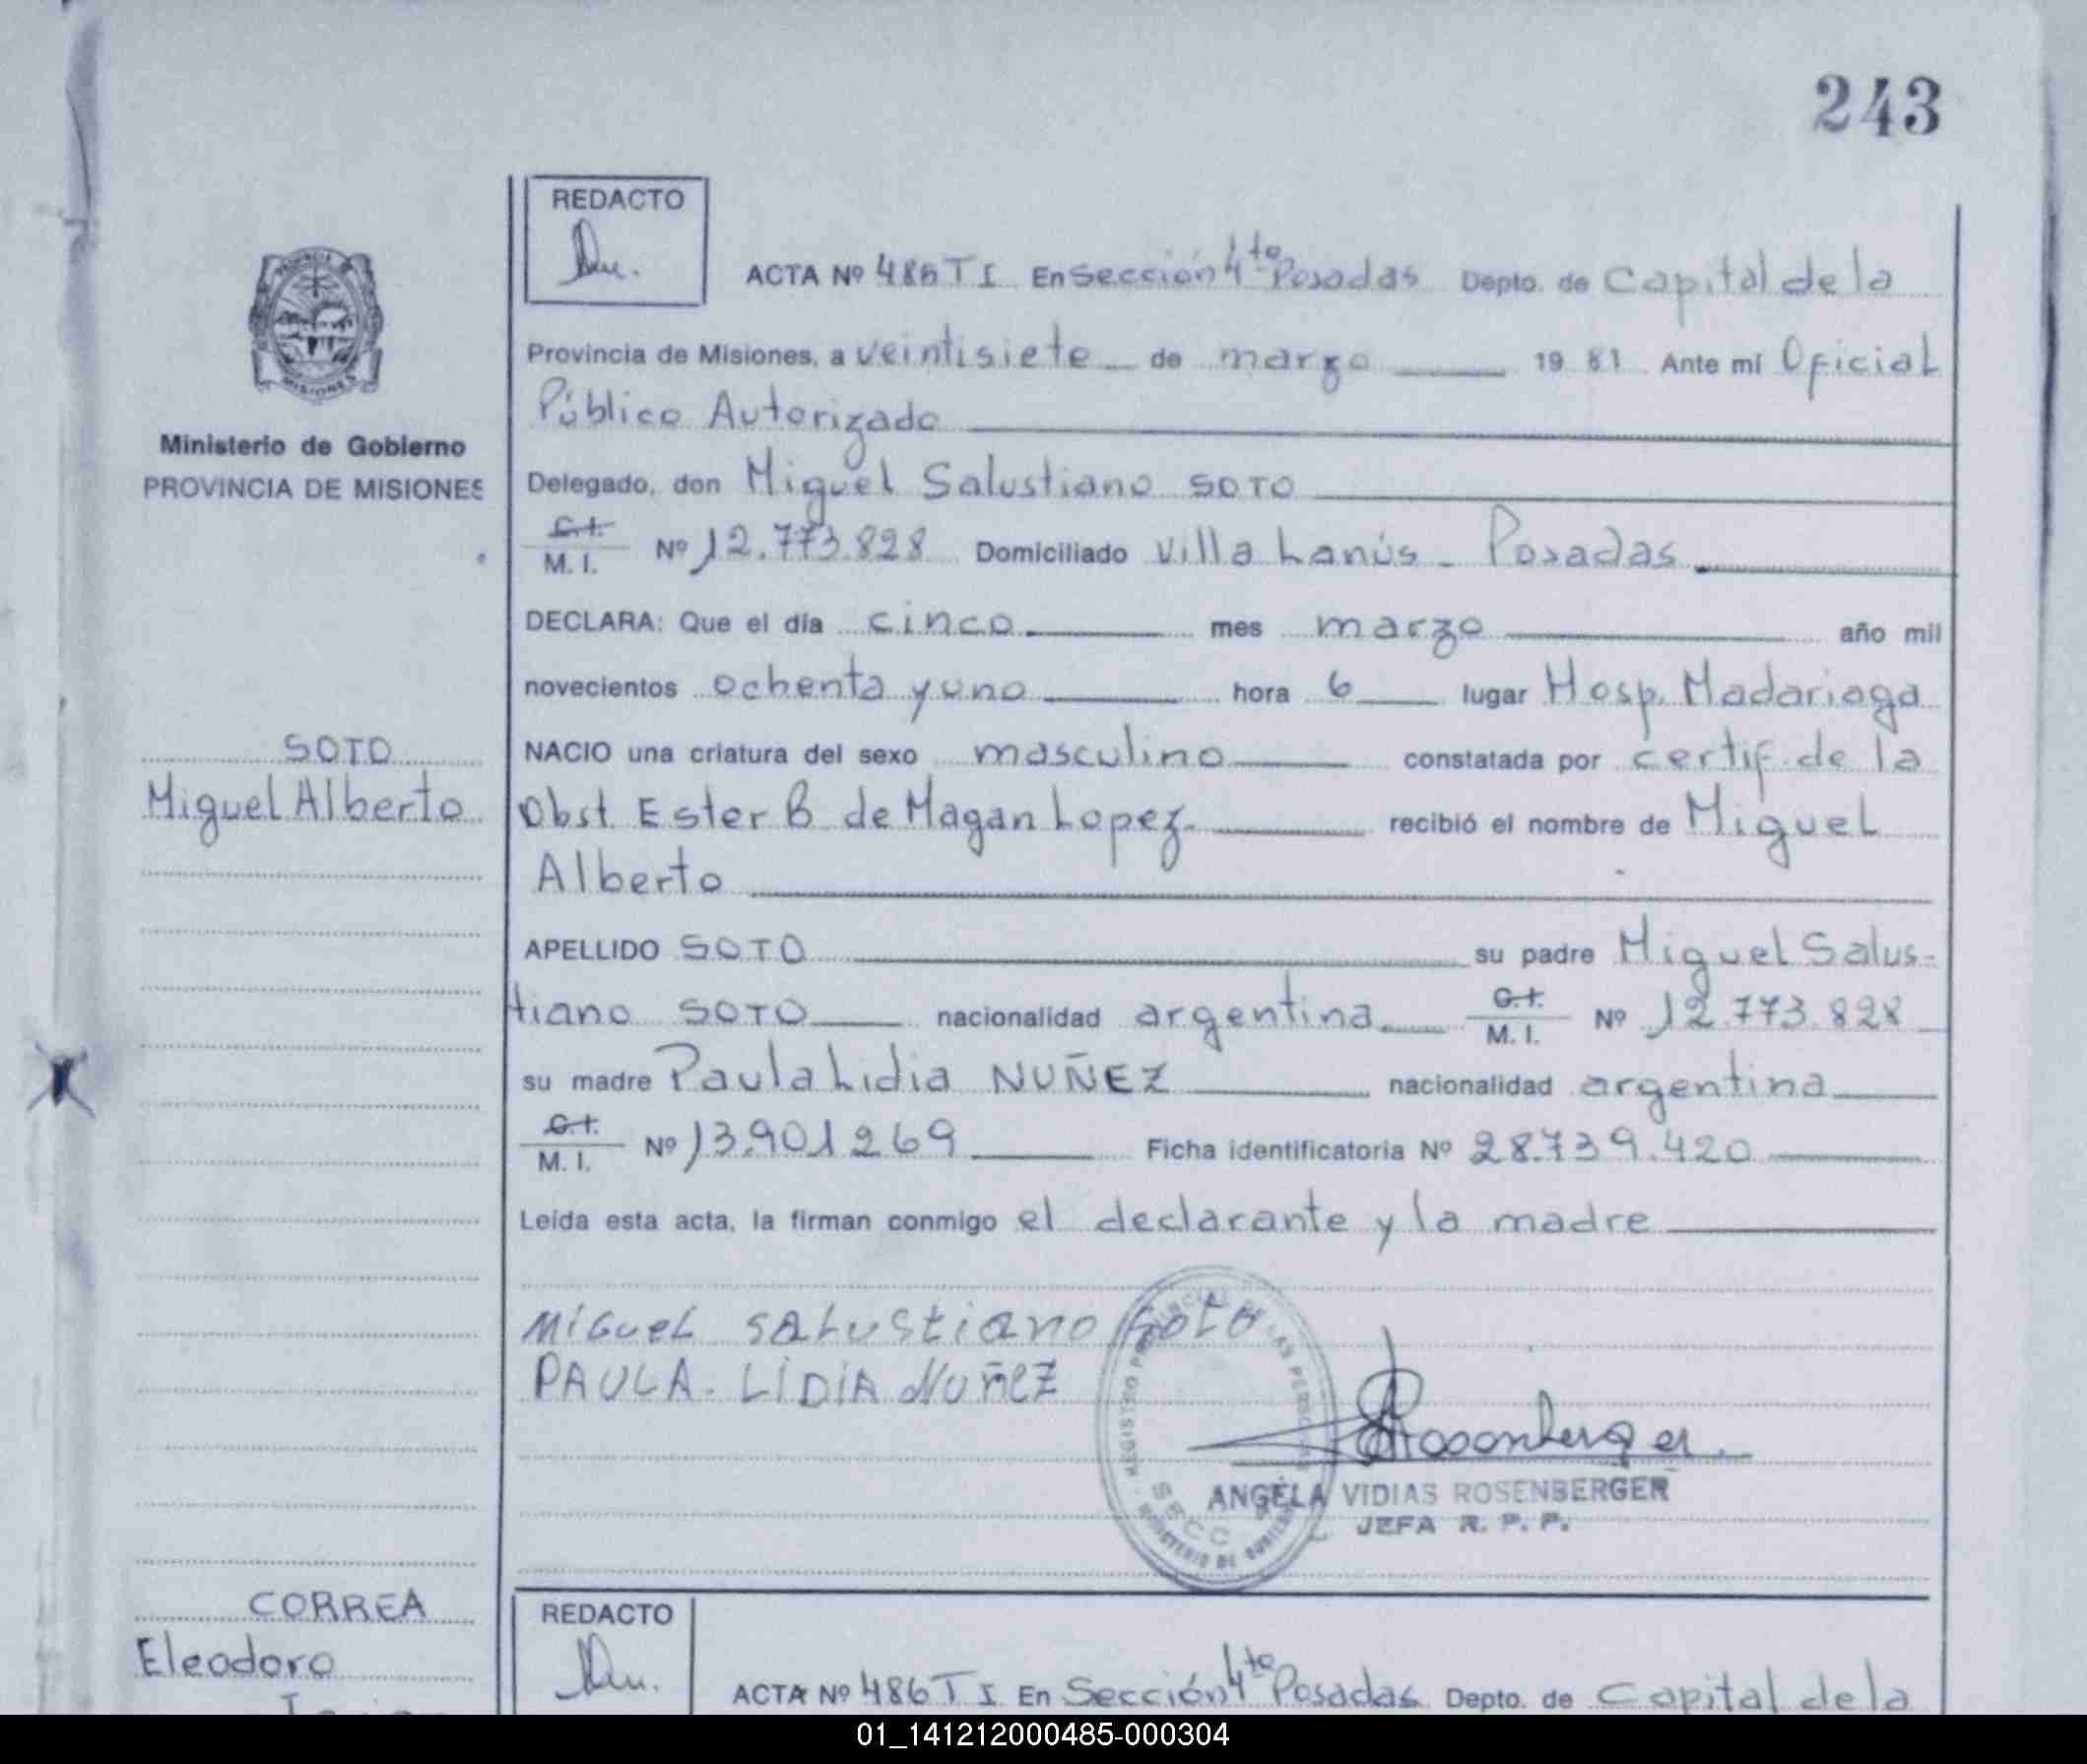 243
REDACTO
ACTA Nº 485 T I En Sección 4to Posadas Depto. de Capital de la
Provincia de Misiones, a veintisiete de marzo 1981. Ante mí Oficial
Público Autorizado
Ministerio de Gobierno
PROVINCIA DE MISIONES
Delegado, don Miguel Salustiano SOTO
C.I.
M. I. Nº 12.773.828 Domiciliado Villa Lanús - Posadas
DECLARA: Que el día cinco mes marzo año mil
novecientos ochenta y uno hora 6 lugar Hosp. Madariaga
SOTO
Miguel Alberto
NACIO una criatura del sexo masculino constatada por certif. de la
Obst Ester B de Magan Lopez. recibió el nombre de Miguel
Alberto
APELLIDO SOTO su padre Miguel Salus-
tiano SOTO nacionalidad argentina C.I.
M. I. Nº 12.773.828
su madre Paula Lidia NUÑEZ nacionalidad argentina
C.I.
M. I. Nº 13.901.269 Ficha identificatoria Nº 28.739.420
Leída esta acta, la firman conmigo el declarante y la madre
MiGueL SALuStiano Soto
PAULA. LIDIA NuñeZ
Rosenberger
ANGELA VIDIAS ROSENBERGER
JEFA R. P. P.
CORREA
Eleodoro
REDACTO
ACTA Nº 486 T I En Sección 4to Posadas Depto. de Capital de la
01_141212000485-000304